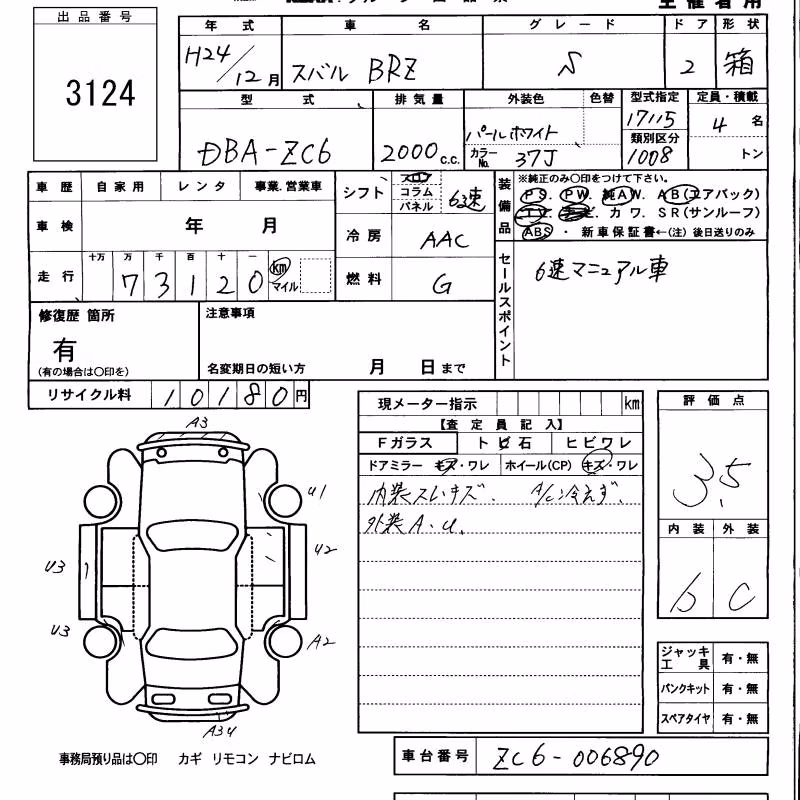 出品番号
3124
年式 車名 グレード ドア 形状
H24/12月 スバル BRZ S 2 箱
型式 排気量 外装色 色替 型式指定 定員・積載
DBA-ZC6 2000c.c. パールホワイト 17115 4名
カラーNo. 37J 類別区分 1008 トン
車歴 自家用 レンタ 事業.営業車
車検 年 月
走行 十万 万 千 百 十 一
73120 km マイル
シフト フロア コラム パネル 6速
冷房 AAC
燃料 G
装備品 ※純正のみ○印をつけて下さい。
PS. PW. 純AW. AB(エアバック)
カワ. SR(サンルーフ)
ABS ・ 新車保証書←(注) 後日送りのみ
セールスポイント
6速マニュアル車
修復歴 箇所
有
(有の場合は○印を)
注意事項
名変期日の短い方 月 日まで
リサイクル料 10180円
現メーター指示 km
【査定員記入】
Fガラス トビ石 ヒビワレ
ドアミラー キズ・ワレ ホイール(CP) キズ・ワレ
内装スレキズ. A/C冷えず.
外装A・U.
評価点
3.5
内装 外装
b C
A3
U1
U2
U3
U3
A2
A34
ジャッキ工具 有・無
パンクキット 有・無
スペアタイヤ 有・無
事務局預り品は○印 カギ リモコン ナビロム
車台番号 ZC6-006890